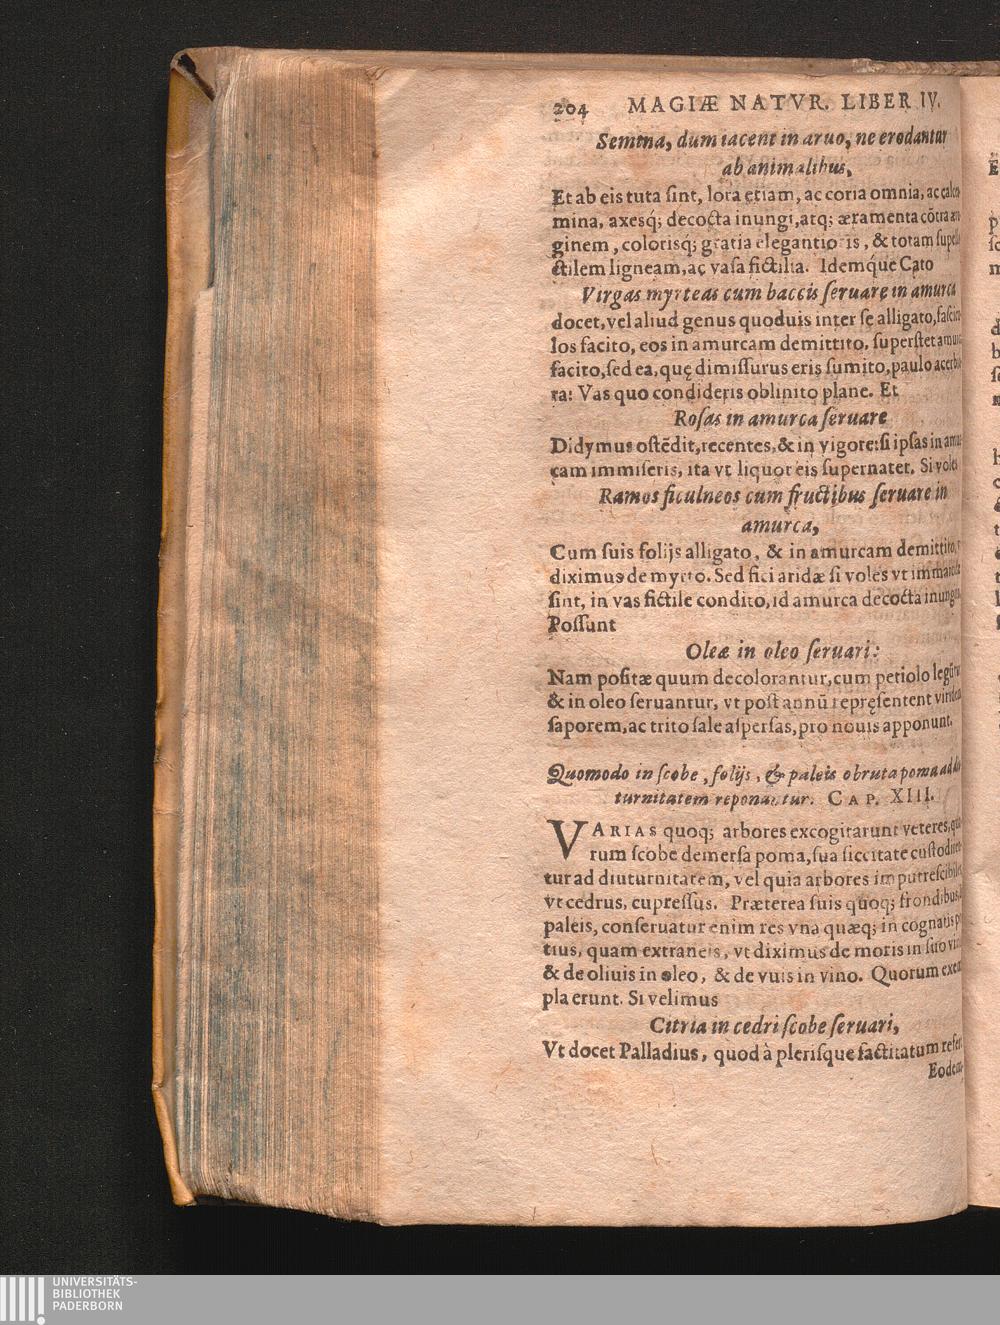 204 MAGIÆ NATVR. LIBER IV.
Semina, dum iacent in aruo, ne erodantur
ab animalibus,
Et ab eis tuta ſint, lora etiam, ac coria omnia, ac
mina, axesq́; decocta inungi, atq; æramenta cõtra
ginem, coloriſq́; gratia elegantioris, & totam
ctilem ligneam, ac vaſa fictilia. Idemq́ue Cato
Virgas myrteas cum baccis ſeruare in amurca
docet, vel aliud genus quoduis inter ſe alligato,
los facito, eos in amurcam demittito, ſuperſtet
facito, ſed ea, quę dimiſſurus eris ſumito, paulo
ra: Vas quo condideris oblinito plane. Et
Roſas in amurca ſeruare
Didymus oſtẽdit, recentes, & in vigore: ſi ipſas in
cam immiſeris, ita vt liquor eis ſupernatet. Si voles
Ramos ficulneos cum fructibus ſeruare in
amurca,
Cum ſuis folijs alligato, & in amurcam demittito,
diximus de myrto. Sed fici aridæ ſi voles vt
ſint, in vas fictile condito, id amurca decocta
Poſſunt
Oleæ in oleo ſeruari:
Nam poſitæ quum decolorantur, cum petiolo
& in oleo ſeruantur, vt poſt annũ repręſentent
ſaporem, ac trito ſale aſperſas, pro nouis apponunt.
Quomodo in ſcobe, folijs, & paleis obruta poma ad
turnitatem reponantur. CAP. XIII.
VARIAS quoq; arbores excogitarunt veteres,
rum ſcobe demerſa poma, ſua ſiccitate
tur ad diuturnitatem, vel quia arbores
vt cedrus, cupreſſus. Præterea ſuis quoq; frondibus,
paleis, conſeruatur enim res vna quæq; in cognatis
tius, quam extraneis, vt diximus de moris in ſuo
& de oliuis in oleo, & de vuis in vino. Quorum
pla erunt. Si velimus
Citria in cedri ſcobe ſeruari,
Vt docet Palladius, quod à pleriſque factitatum
Eodem
UNIVERSITÄTS-
BIBLIOTHEK
PADERBORN